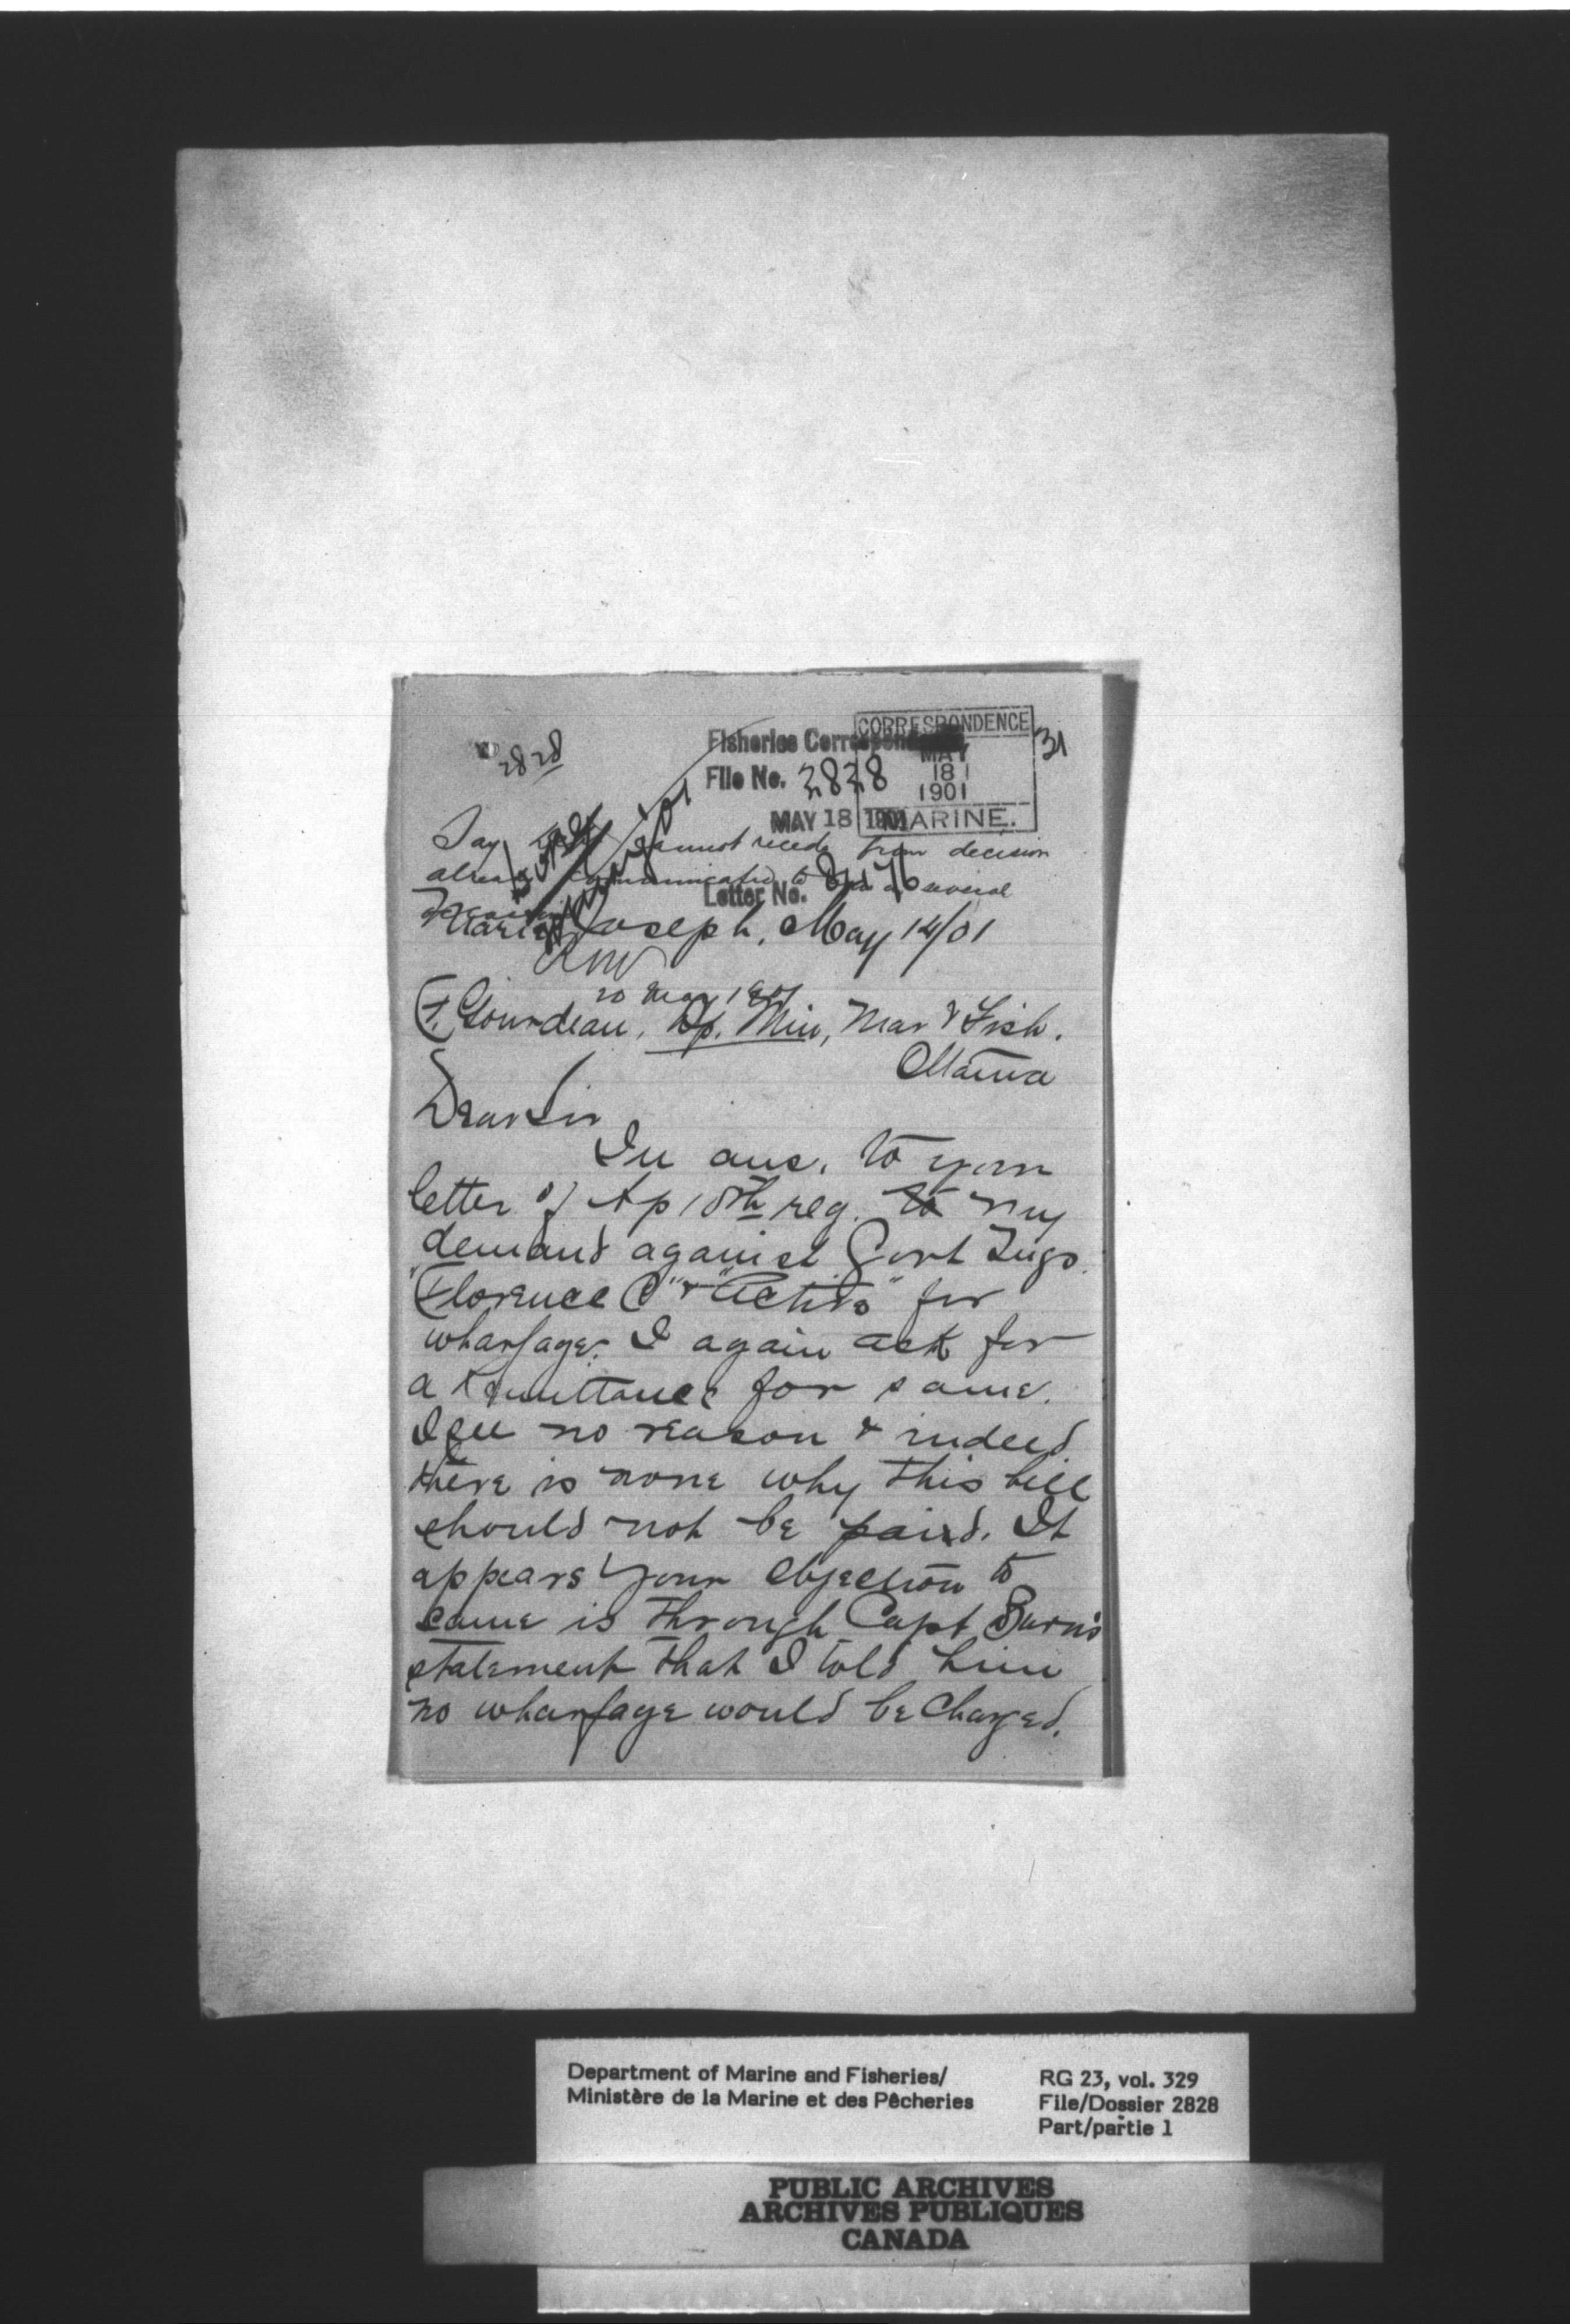 2828
Fisheries Correspondence
File No. 2828
MAY 18 1901
CORRESPONDENCE
MAY
18 1
1901
MARINE.
31
Say cannot recede from decision
already communicated to him on several
occasions
Letter No.
RNV
20 May 1901
Joseph, May 14/01
F. Gourdeau, Dp. Min, Mar & Fish.
Ottawa
Dear Sir
In ans. to your
letter of Ap 18th reg. to my
demand against Govt Tugs
"Florence C" & "Activo" for
wharfage. I again ask for
a remittance for same.
I see no reason & indeed
there is none why this bill
should not be paid. It
appears your objection to
same is through Capt Burn's
statement that I told him
no wharfage would be charged.
Department of Marine and Fisheries/
Ministère de la Marine et des Pêcheries
RG 23, vol. 329
File/Dossier 2828
Part/partie 1
PUBLIC ARCHIVES
ARCHIVES PUBLIQUES
CANADA